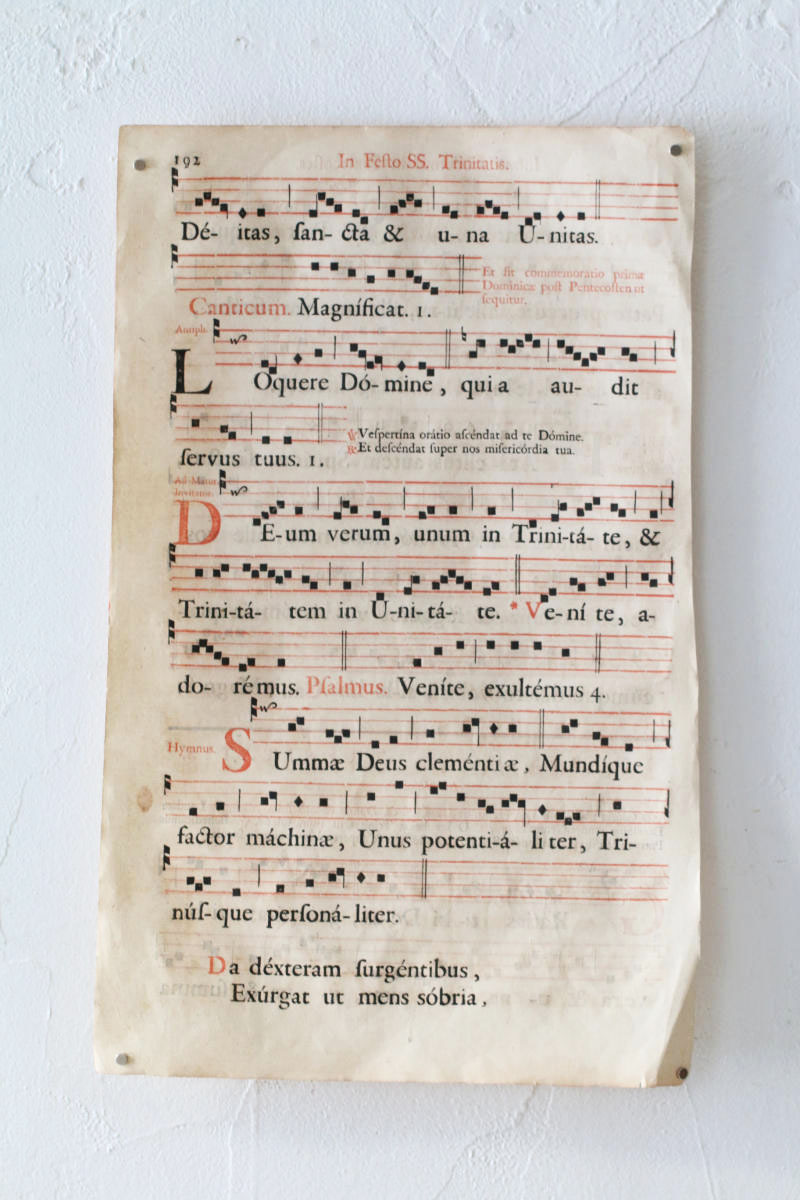 192
In Feſto SS. Trinitatis.
Dé- itas, ſan- cta & u- na U- nitas.
Et fit commemoratio primæ
Dominicæ poſt Pentecoſten ut
ſequitur.
Canticum. Magníficat. 1.
Antiph.
LOquere Dó- mine, quia au- dit
ſervus tuus. 1.
℣ Veſpertína orátio aſcéndat ad te Dómine.
℟ Et deſcéndat ſuper nos miſericórdia tua.
Ad Matut.
Invitator.
DE-um verum, unum in Trini-tá- te, &
Trini-tá- tem in U-ni-tá- te. * Ve-ní te, a-
do- rémus. Pſalmus. Veníte, exultémus 4.
Hymnus.
SUmmæ Deus cleménti æ, Mundíque
factor máchinæ, Unus potenti-á- li ter, Tri-
núſ-que perſoná-liter.
Da déxteram ſurgéntibus,
Exúrgat ut mens sóbria,